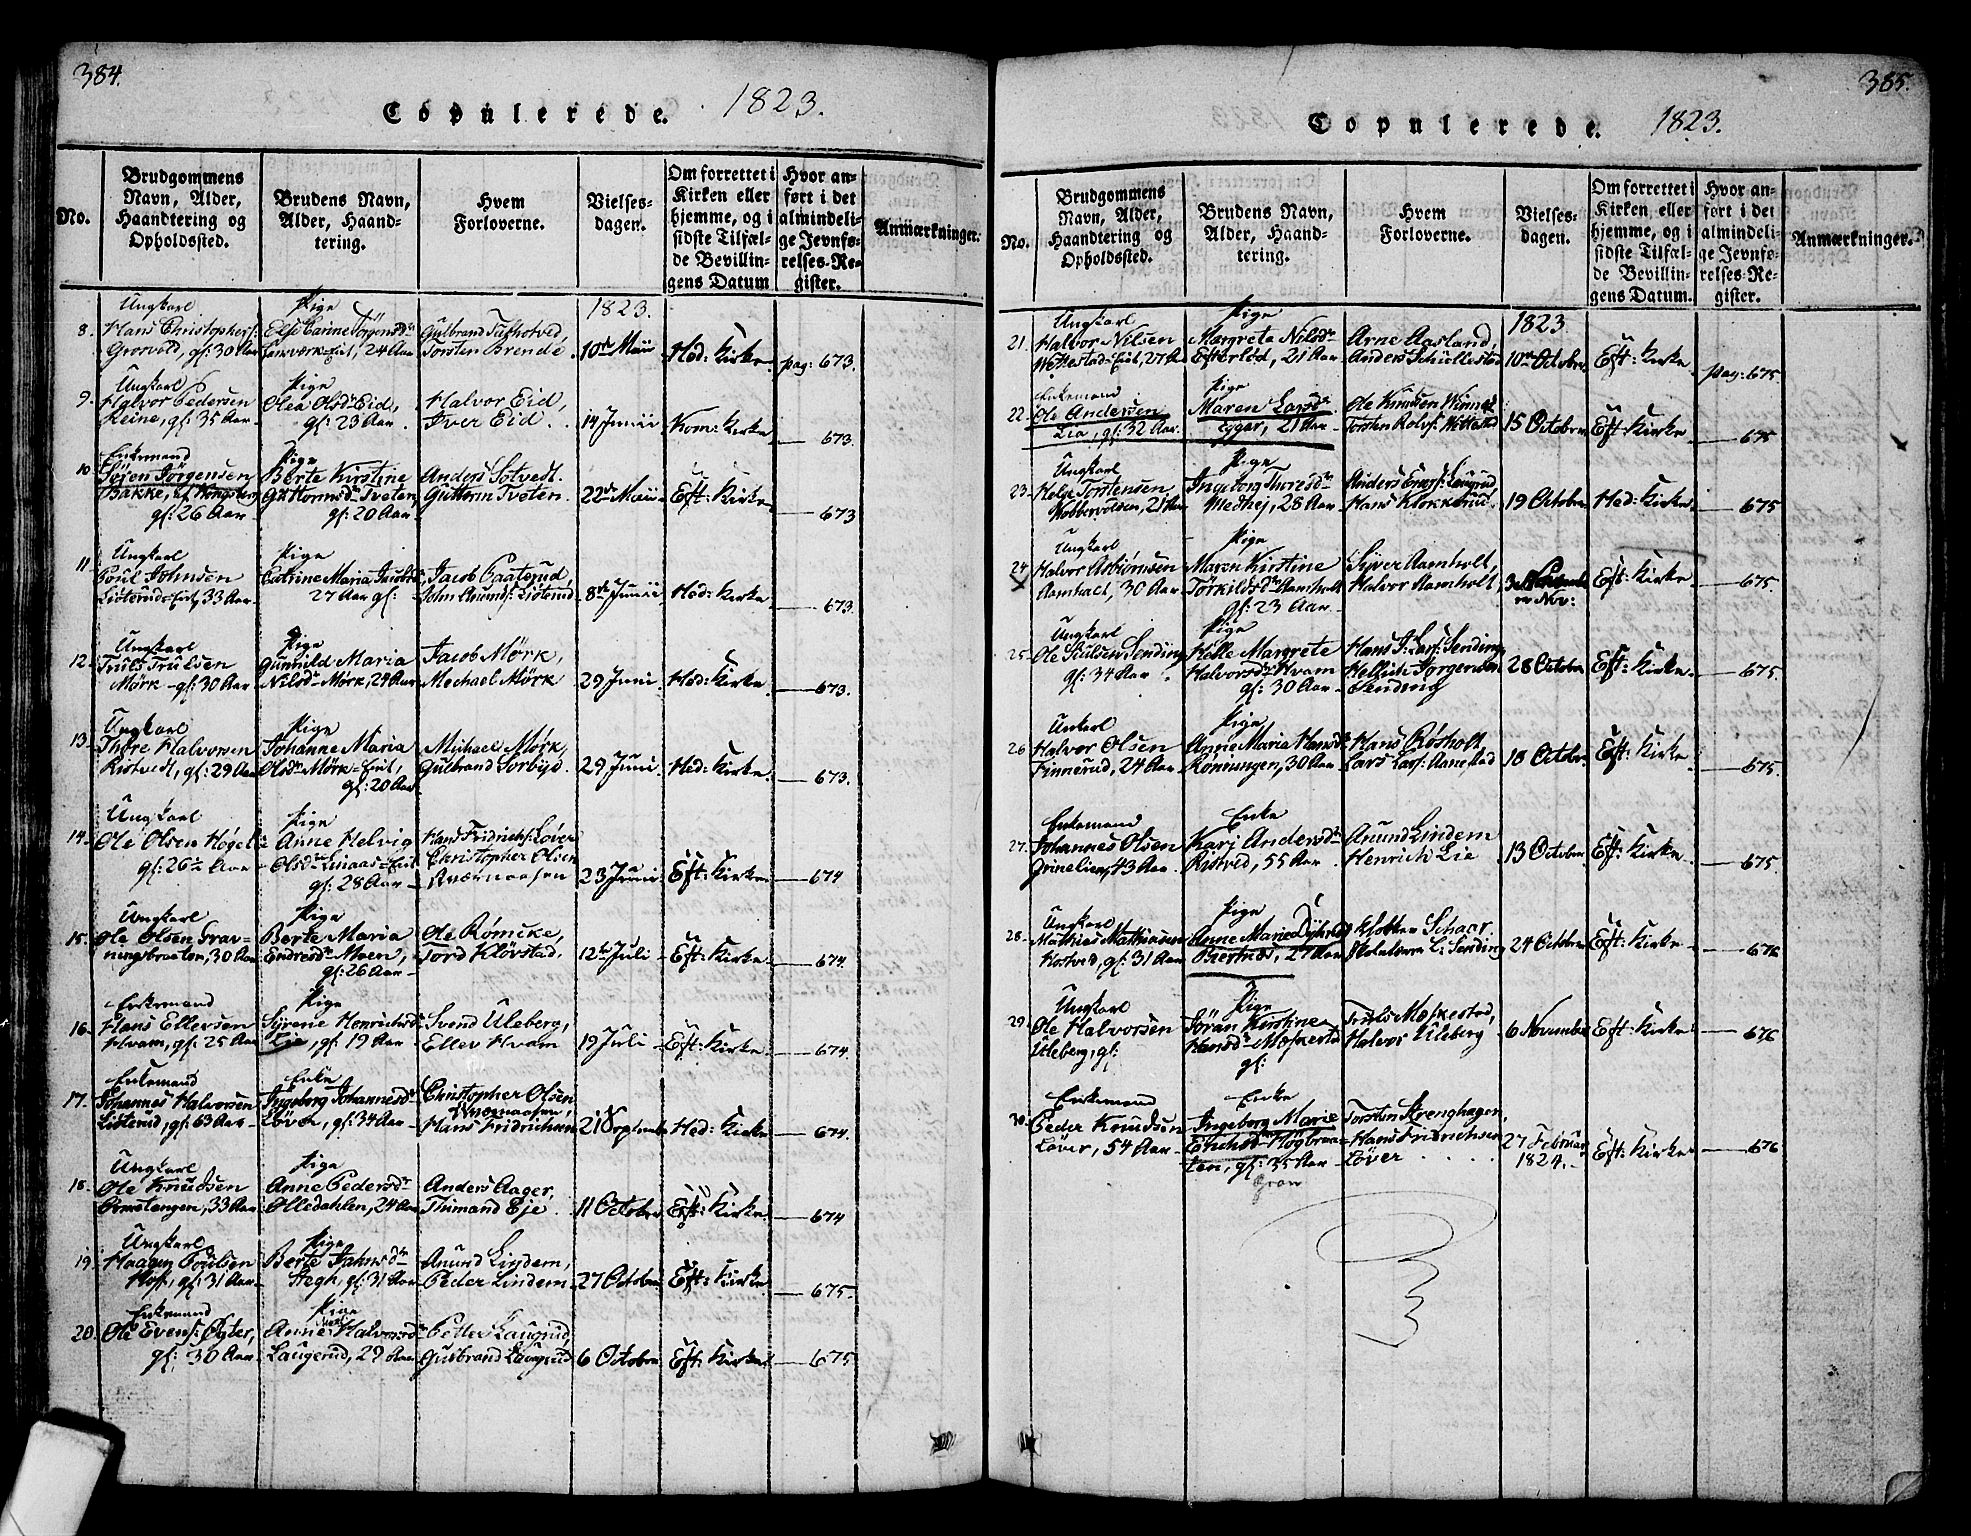 384.
Copulerede. 1823.
No.
Brudgommens
Navn, Alder,
Haandtering og
Opholdssted.
Brudens Navn,
Alder, Haand-
tering.
Hvem
Forloverne.
Vielses-
dagen.
Om forrettet i
Kirken eller
hjemme, og i
sidste Tilfæl-
de Bevillin-
gens Datum
Hvor an-
ført i det
almindeli-
ge Jevnfø-
relses-Re-
gister.
Anmærkninger.
1823.
8. Ungkarl
Hans Christophers:
Grosvold, gf: 30 Aar
Pige
Else Carine Jörgensdr
24 Aar
Gulbrand Tufhotved
Torsten Brende
10de Maii
Hed: Kirke
pag: 673.
9. Ungkarl
Halvor Pedersen
Reine, gf: 35 Aar
Pige
Olea Olsdr Eid,
gf: 23 Aar
Halvor Eid,
Iver Eid.
14 Junii
Kom: Kirke
673.
10. Enkemand
Sören Jörgensen
Bakke, af Kongsberg
gf: 26 Aar
Pige
Berte Kirstine
Guttormsdr Tveten,
gf: 20 Aar
Anders Sotvedt.
Guttorm Tveten.
22de Maii
Eft: Kirke
673
11. Ungkarl
Poul Johnsen
Listerud-Eiet, 33 Aar
Pige
Catrine Maria Jacobsd
27 Aar gf:
Jacob Paaterud,
John Anunds: Listerud
8de Junii
Hed: Kirke
673.
12. Ungkarl
Truls Trulsen
Mörk - gf: 30 Aar
Pige
Gunnild Maria
Nilsdr Mörk, 24 Aar
Jacob Mörk,
Mechael Mörk
29 Juni
Hed: Kirke
673.
13. Ungkarl
Thore Halvorsen
Ristvedt, gf: 29 Aar
Pige
Johanne Maria
Olsdr Mörk-Eiet,
gf: 20 Aar
Michael Mörk,
Gulbrand Sorbye.
29 Juni
Hed: Kirke
673.
14. Ungkarl
Ole Olsen Høgel:
gf: 26½ Aar
Pige
Anne Helvig
Olsdr Smaas-Eiet
gf: 28 Aar
Hans Fridrichs: Løver
Christopher Olsen
Kværnaasen
23 Junii
Eft: Kirke
674
15. Ungkarl
Ole Olsen Grav-
ningsbraaten, 30 Aar
Pige
Berte Maria
Endresdr Moen,
gf: 26 Aar
Ole Römcke,
Tord Klövstad.
12te Juli
Eft: Kirke
674.
16. Enkemand
Hans Ellevsen
Hvam, gf: 25 Aar
Pige
Syrene Henrichsd
Lie, gf: 19 Aar
Svend Uleberg,
Ellev Hvam
19 Juli
Eft: Kirke
674.
17. Enkemand
Johannes Halvorsen
Listerud, gf: 63 Aar
Enke
Ingeborg Johannesdr
Löver, gf: 34 Aar
Christopher Olsen
Kværnaasen,
Hans Fridrichsen
21 Septemb
Hed: Kirke
674.
18. Ungkarl
Ole Knudsen
Ormetangen, 33 Aar
Pige
Anne Pedersdr
Olledahlen, 24 Aar
Anders Aager,
Thimand Eje
11 October
Eft: Kirke
674
19. Ungkarl
Haagen Poulsen
Hof, gf: 31 Aar
Pige
Berte Jahnsdr
Stegh, gf: 31 Aar
Anund Lindem,
Peder Lindem
27 October
Eft: Kirke
675.
20. Enkemand
Ole Evens: Øyter,
gf: 30 Aar
Pige
Anne Halvorsdr
Laugerud, 29 Aar
Petter Laugrud,
Gulbrand Laugrud
6 October
Eft: Kirke
675
385.
Copulerede. 1823.
No.
Brudgommens
Navn, Alder,
Haandtering og
Opholdssted.
Brudens Navn,
Alder, Haand-
tering.
Hvem
Forloverne.
Vielses-
dagen.
Om forrettet i
Kirken eller
hjemme, og i
sidste Tilfæl-
de Bevillin-
gens Datum.
Hvor an-
ført i det
almindeli-
ge Jevnfø-
relses-Re-
gister.
Anmærkninger.
1823
21. Ungkarl
Halvor Nilsen
Wettestad-Eiet, 27 Aar
Pige
Margreta Nilsdr
Efterlød, 21 Aar
Arne Aasland,
Anders Schiellestad
10de October
Eft: Kirke
pag: 675.
22. Enkemand
Ole Andersen
Lie, gf: 32 Aar.
Pige
Maren Larsdr
Eggar, 21 Aar
Ole Knudsen
Torsten Rolvs: Wittestad
15 October
Eft: Kirke
675
23. Ungkarl
Helge Torstensen
Kobbervolsen, 21 Aar
Pige
Ingeborg Thoresdr
Medhej, 28 Aar
Anders Laugrud,
Hans Klokkerud.
19 October
Hed: Kirke
675
24. Ungkarl
Halvor Asbiörnsen
30 Aar
Pige
Maren Kirstine
Törkildsdr Aamholt
gf: 23 Aar
Syver Aamholt,
Halvor Aamholt,
3
Nov:
Eft: Kirke
675.
25. Ungkarl
Ole Poulsen Sending
gf: 34 Aar
Pige
Helle Margrete
Halvorsdr Hvam
gf: 30 Aar
Hans J: Lars: Sending
Hellich Jorgensen
Sending
28 October
Eft: Kirke
675.
26 Unkarl
Halvor Olsen
Finnerud, 24 Aar
Pige
Anne Maria Hansdr
Rønningen, 30 Aar
Hans Røsholt,
Lars Lars: Aanestad
18 October
Eft: Kirke
675.
27. Enkemand
Johannes Olsen
Grinelien, 43 Aar
Enke
Karj Andersdr
Ristved, 55 Aar
Anund Lindem
Henrich Lie
13 October
Eft: Kirke
675.
28. Ungkarl
Mathias Mathiasen
Kostved, gf: 31 Aar
Pige
Anne Marie
27 Aar
Klokker Schaar
Skoelærer L: Sending
24 October
Eft: Kirke
676
29. Ungkarl
Ole Halvorsen
Uleberg, gf:
Pige
Jöran Kirstine
Hansdr Moskestad
gf:
Truls Moskestad,
Halvor Uleberg
6 November
Eft: Kirke
676
30. Enkemand
Peder Knudsen
Løver, 54 Aar
Enke
Ingeborg Marie
Erichsdr Högbraa-
ten, gf: 35 Aar
Gran
Torsten Strenghagen,
Hans Fridrichsen
Løver
27 Februar
1824.
Eft: Kirke
676